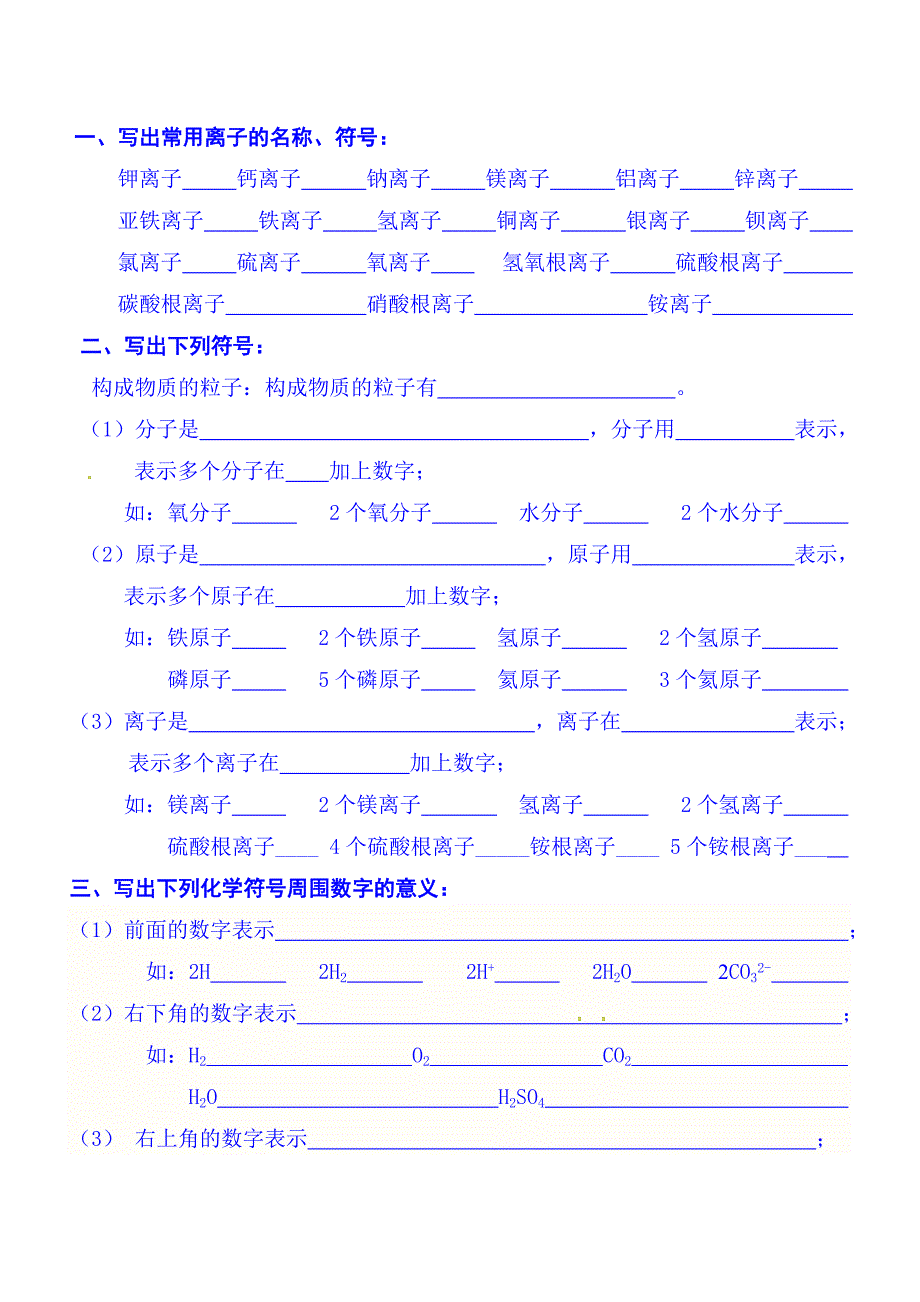 一、写出常用离子的名称、符号：
钾离子_____钙离子______钠离子_____镁离子______铝离子_____锌离子_____
亚铁离子_____铁离子_____氢离子______铜离子______银离子_____钡离子____
氯离子_____硫离子______氧离子____ 氢氧根离子______硫酸根离子______
碳酸根离子_____________硝酸根离子________________铵离子_____________
二、写出下列符号：
构成物质的粒子：构成物质的粒子有______________________。
（1）分子是____________________________________，分子用___________表示，
表示多个分子在____加上数字；
如：氧分子______ 2个氧分子______ 水分子______ 2个水分子______
（2）原子是________________________________，原子用_______________表示，
表示多个原子在____________加上数字；
如：铁原子_____ 2个铁原子_____ 氢原子______ 2个氢原子_______
磷原子_____ 5个磷原子_____ 氦原子______ 3个氦原子________
（3）离子是________________________________，离子在________________表示；
表示多个离子在____________加上数字；
如：镁离子_____ 2个镁离子_______ 氢离子______ 2个氢离子______
硫酸根离子____ 4个硫酸根离子_____铵根离子____ 5个铵根离子_____
三、写出下列化学符号周围数字的意义：
（1）前面的数字表示_____________________________________________________；
如：2H_______ 2H₂_______ 2H⁺______ 2H₂O_______ 2CO₃²⁻_______
（2）右下角的数字表示__________________________________________________；
如：H₂___________________O₂________________CO₂____________________
H₂O__________________________H₂SO₄____________________________
（3） 右上角的数字表示_______________________________________________；